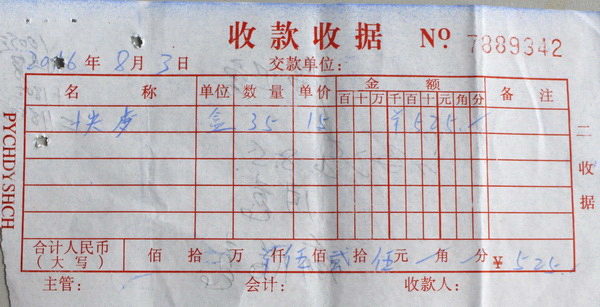 收款收据 № 7889342
2016年8月3日 交款单位:
名称 单位 数量 单价 金额 备注
百十万千百十元角分
盒 35 15 ¥525.-
合计人民币(大写) 佰 拾 万 仟 伍佰 贰拾 伍元 角 分 ¥ 525
主管: 会计: 收款人:
二 收据
PYCHDYSHCH